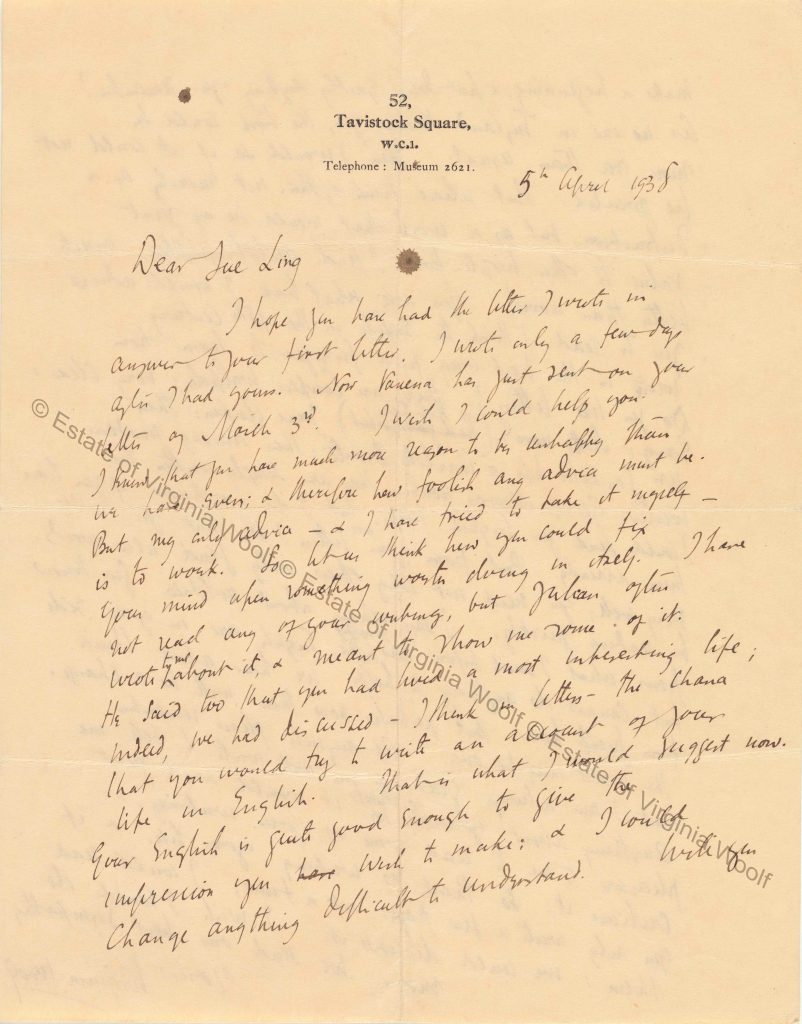 52,
Tavistock Square,
W.C.1.
Telephone : Museum 2621.
5th April 1938
Dear Sue Ling
I hope you have had the letter I wrote in
answer to your first letter. I wrote only a few days
after I had yours. Now Vanessa has just sent on your
letter of March 3rd. I wish I could help you.
I know that you have much more reason to be unhappy than
we have even; & therefore how foolish any advice must be.
But my only advice – & I have tried to take it myself –
is to work. So let us think how you could fix
your mind upon something worth doing in itself. I have
not read any of your writing, but Julian often
wrote to me about it, & meant to show me some of it.
He said too that you had lived a most interesting life;
indeed, we had discussed – I think in letters – the chance
that you would try to write an account of your
life in English. That is what I would suggest now.
Your English is quite good enough to give the
impression you have wish to make; & I could
change anything difficult to understand. Will you
© Estate of Virginia Woolf © Estate of Virginia Woolf © Estate of Virginia Woolf